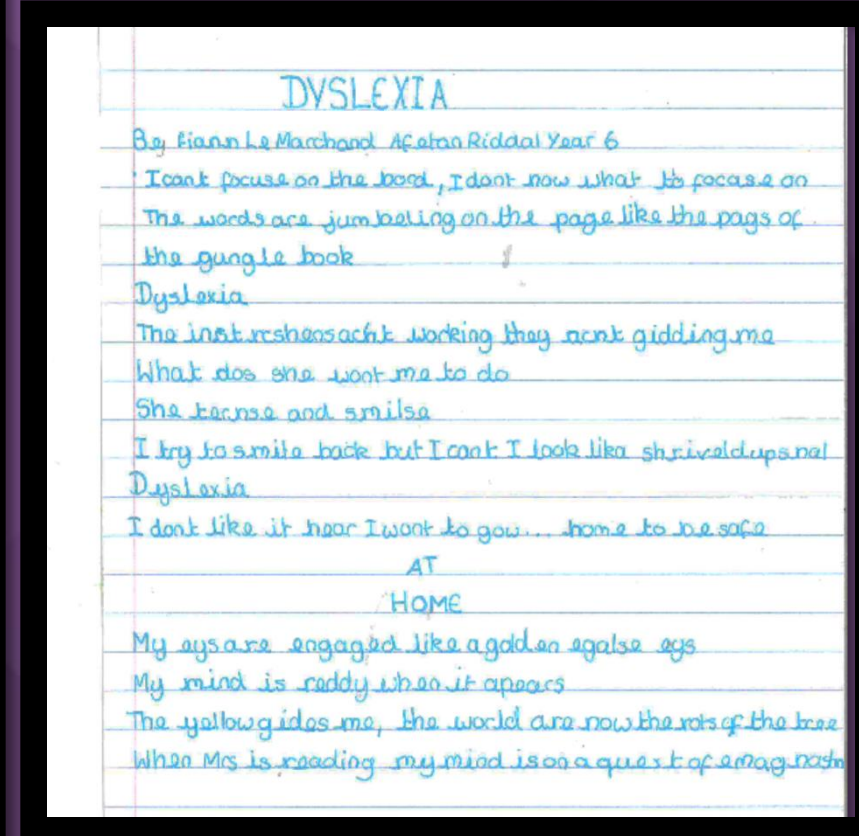 DYSLEXIA
By Fiann Le Marchand Afatan Riddal Year 6
I cant focuse on the bord, I dont now what to focase on
The words are jumbeling on the page like the pags of
the gungle book
Dyslexia
The working they arnt gidding me
What dos she wont me to do
She ternse and smilse
I try to smile back but I cant I look like shriveldupsnal
Dyslexia
I dont like it hear I wont to gow... home to be safe
AT
HOME
My eys are engaged like a golden egalse eys
My mind is reddy when it apears
The yellow gides me, the world are now the rots of the tree
When Mrs is reading my mind is on a quest of emagnashn